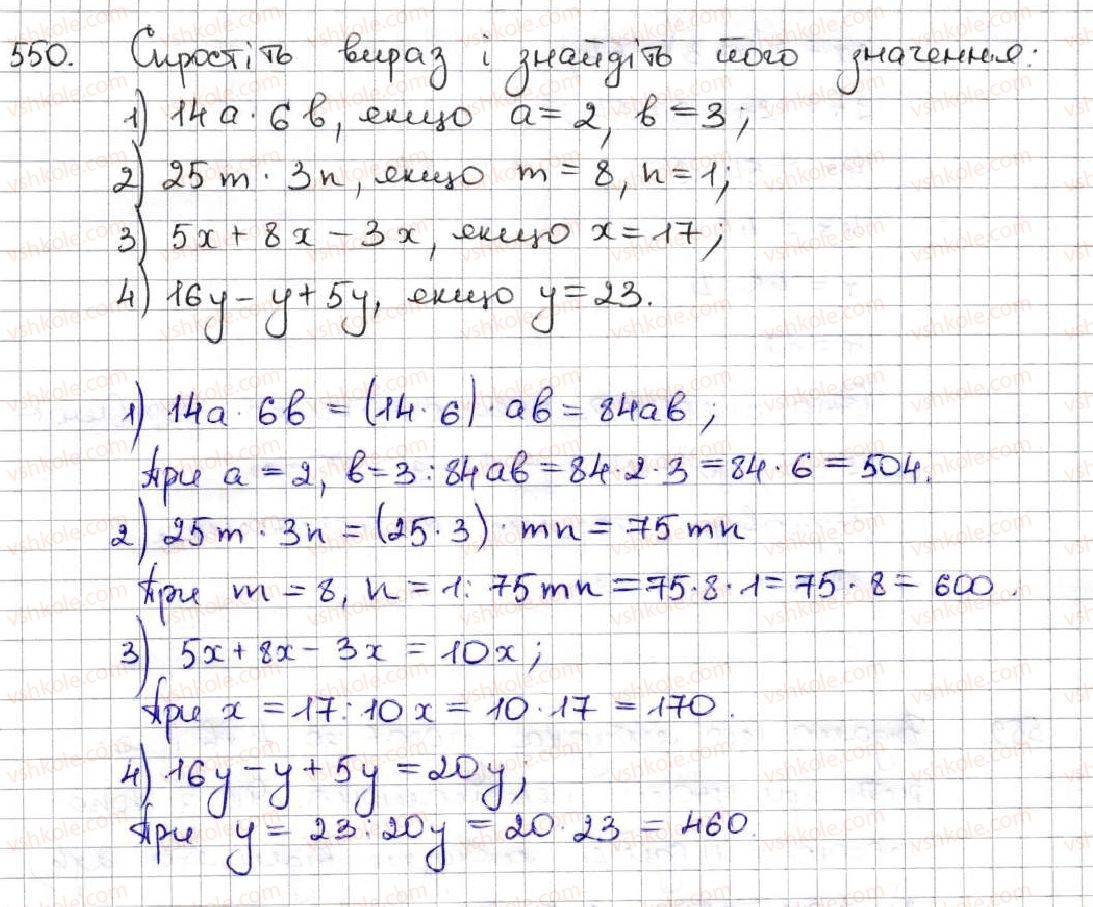 550. Спростіть вираз і знайдіть його значення:
1) 14a · 6b, якщо a = 2, b = 3;
2) 25m · 3n, якщо m = 8, n = 1;
3) 5x + 8x – 3x, якщо x = 17;
4) 16y – y + 5y, якщо y = 23.
1) 14a · 6b = (14 · 6) · ab = 84ab;
При a = 2, b = 3 : 84ab = 84 · 2 · 3 = 84 · 6 = 504.
2) 25m · 3n = (25 · 3) · mn = 75mn
При m = 8, n = 1: 75mn = 75 · 8 · 1 = 75 · 8 = 600.
3) 5x + 8x – 3x = 10x;
При x = 17 : 10x = 10 · 17 = 170.
4) 16y – y + 5y = 20y;
При y = 23 : 20y = 20 · 23 = 460.